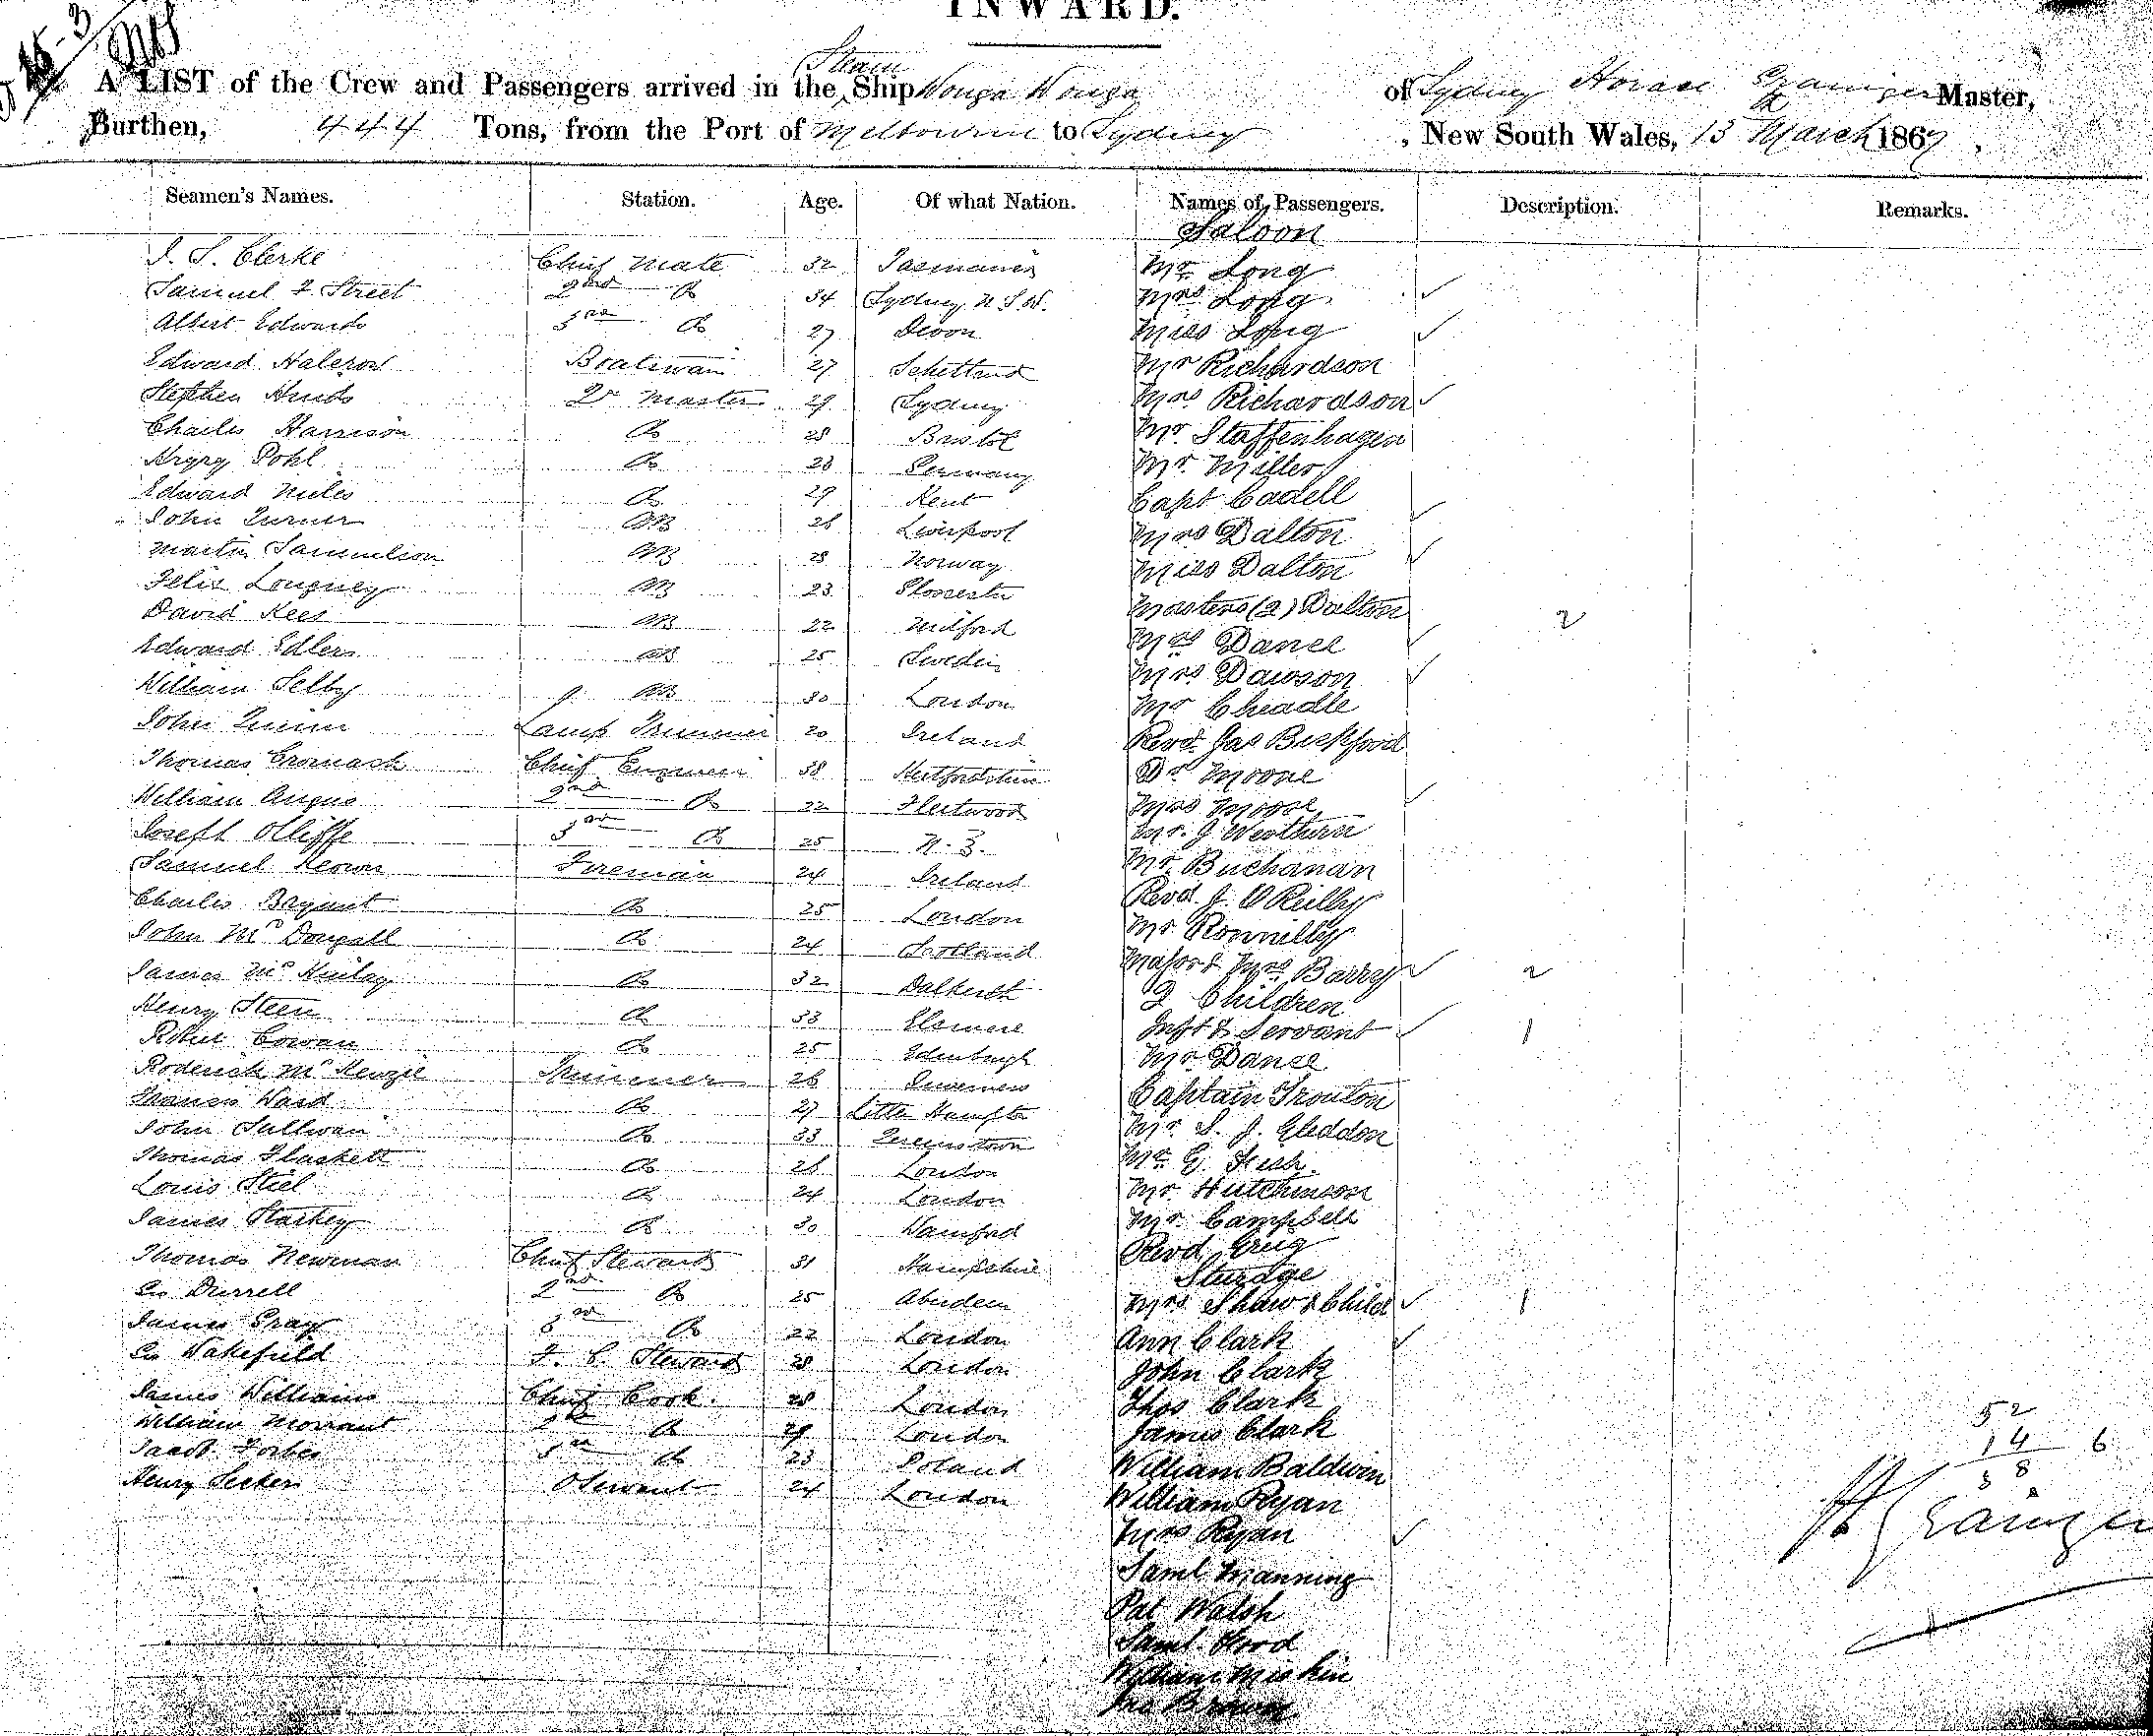 INWARD.
Steam
A LIST of the Crew and Passengers arrived in the Ship Wonga Wonga of Sydney Horace Grainger Master,
Burthen, 444 Tons, from the Port of Melbourne to Sydney, New South Wales, 13 March 1867
Seamen's Names. Station. Age. Of what Nation. Names of Passengers. Description. Remarks.
Saloon
J. S. Clerke Chief Mate 32 Tasmania Mr Long
Samuel Street 2nd Do 34 Sydney N.S.W. Mrs Long
Albert Edwards 3rd Do 27 Devon Miss Long
Edward Halcrow Boatswain 27 Schetland Mr Richardson
Stephen Qr Master 29 Sydney Mrs Richardson
Charles Harrison Do 28 Bristol Mr. Staffenhagen
Pohl Do 23 Germany Mr. Miller
Edward Niles Do 29 Kent Capt Cadell
John Turner AB 26 Liverpool Mrs Dalton
Martin Samuelson AB 28 Norway Miss Dalton
Felix AB 23 Gloucester Masters (2) Dalton 2
David Rees AB 22 Milford Mrs Dance
Edward Edlers AB 25 Sweden Mrs Dawson
William Selby AB 30 London Mr Cheadle
John Quinn Lamp Trimmer 20 Ireland Revd. Jas Bickford
Thomas Cromack Chief Engineer 38 Hertfordshire Dr Moore
William Angus 2nd Do 22 Fleetwood Mrs Moore
Joseph Olliffe 3rd Do 25 N.Z. Mr. J
Samuel Keown Fireman 24 Ireland Mr. Buchanan
Charles Bryant Do 25 London Revd. J. O'Reilly
John McDougall Do 24 Scotland Mr
James McKinlay Do 32 Dalkeith Major & Mrs Barry 2
Henry Steen Do 33 2 Children
Robert Cowan Do 25 Edinburgh Inft & Servant 1
Mr Dance
Roderick McKenzie Trimmer 26 Inverness Captain Trouton
Francis Ward Do 27 Little Hampton Mr. S. J. Gleddon
John Sullivan Do 33 Queenstown Mr G. Fish.
Thomas Pluckett Do 26 London Mr Hutchinson
Louis Stiel Do 24 London Mr. Campbell
James Starkey Do 30 Revd Greig
Thomas Newman Chief Steward 31 Hampshire Sturdge
Geo Durrell 2nd Do 25 Aberdeen Mrs Shaw & Child 1
James Gray 3rd Do 22 London Ann Clark
Geo Wakefield F. C. Steward 28 London John Clark
James Williams Chief Cook 28 London Thos Clark
William Morrant 2nd Do 29 London James Clark
Jacob Forbes 3rd Do 23 Poland William Baldwin
Henry Seekers O Servant 24 London William Ryan
Mrs Ryan
Saml Manning
Pat Walsh
Saml Hood
William Miskin
Jno Brown
52
14 6
H Grainger